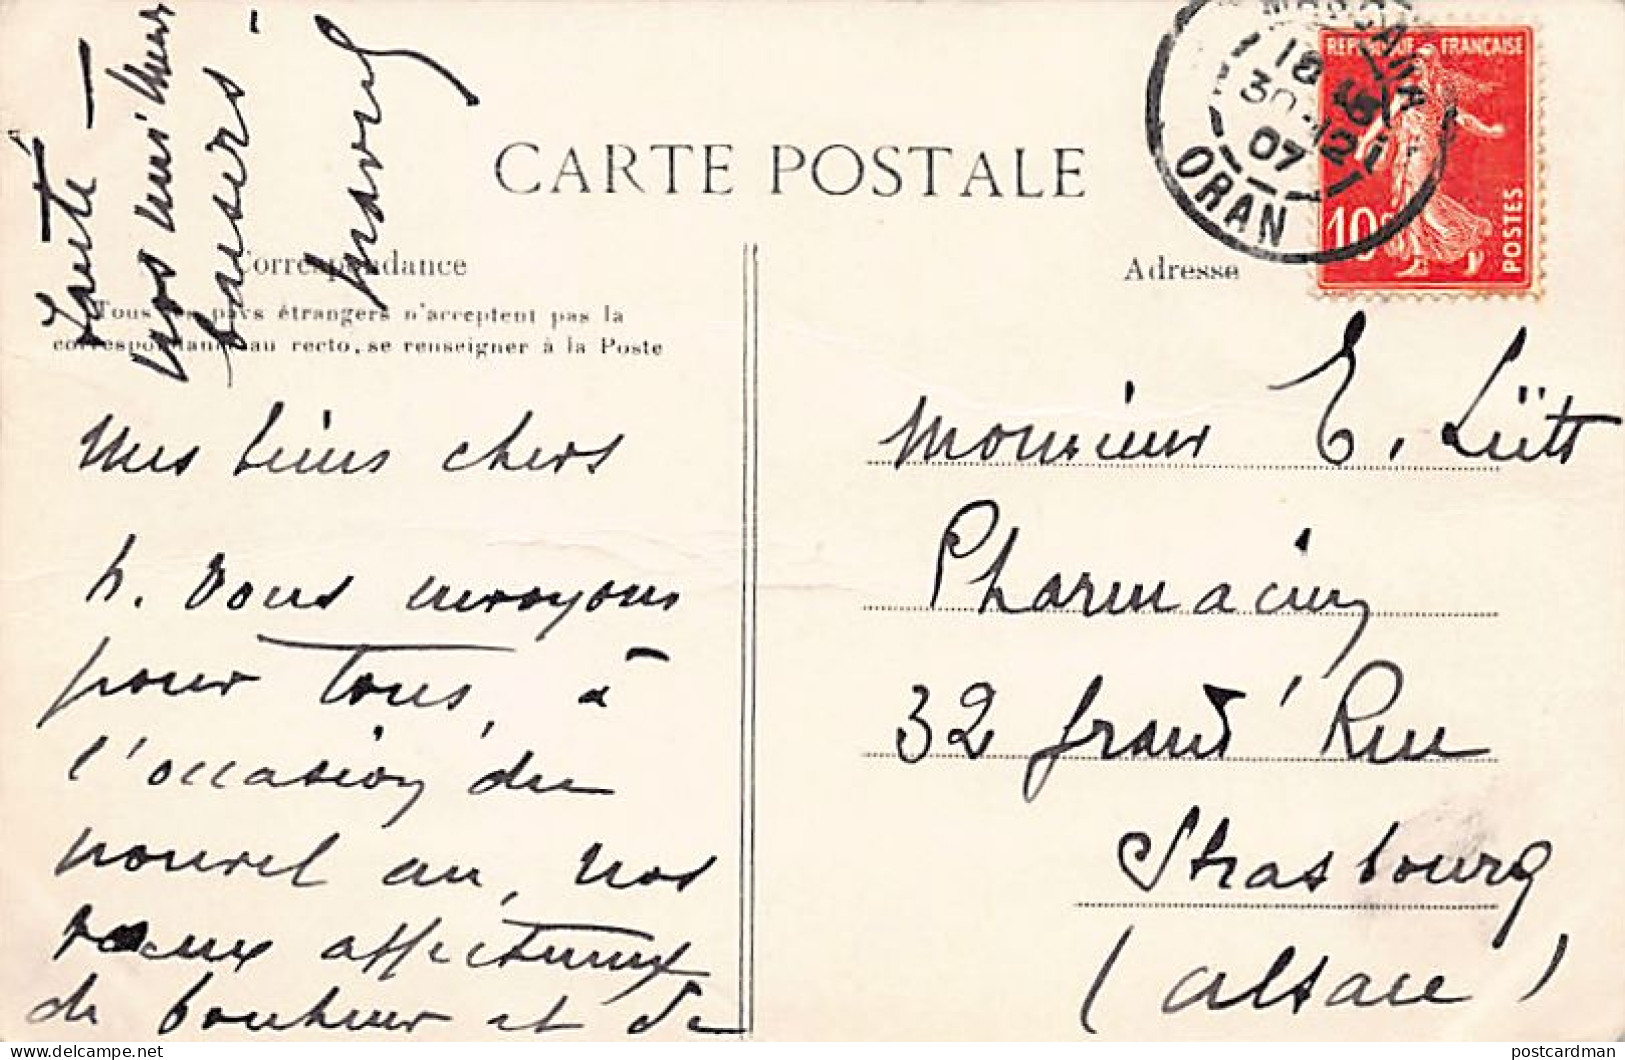 CARTE POSTALE
Correspondance
Tous les pays étrangers n'acceptent pas la
correspondance au recto, se renseigner à la Poste
Mes biens chers
N. vous envoyons
pour tous, à
l'occasion du
nouvel an, nos
vœux affectueux
de bonheur et de
Santé –
Nos meilleurs
baisers –
Adresse
ORAN
18
30 -12
07
REPUBLIQUE FRANÇAISE
10c
POSTES
Monsieur E. Lütt
Pharmacien
32 Grand' Rue
Strasbourg
(Alsace)
postcardman